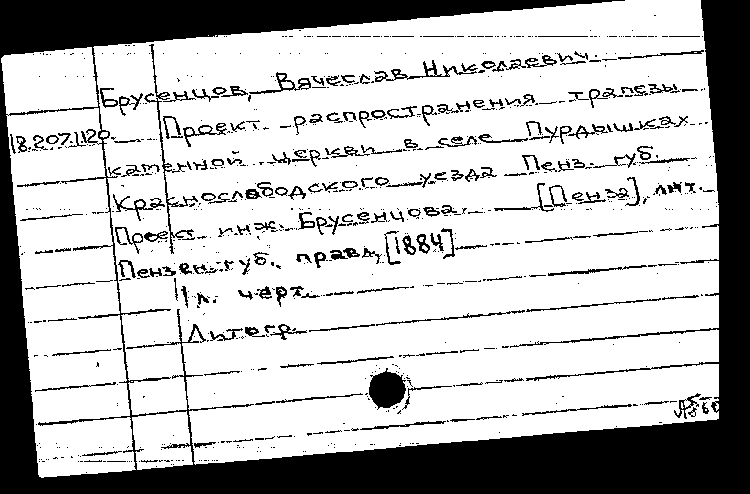 Брусенцов, Вячеслав Николаевич.
18.207.1120. Проект распространения трапезы
каменной церкви в селе Пурдышках
Краснослободского уезда Пенз. губ.
Проект инж. Брусенцова. [Пенза], лит.
Пензен. губ. правл, [1884]
1 л. черт.
Литогр.